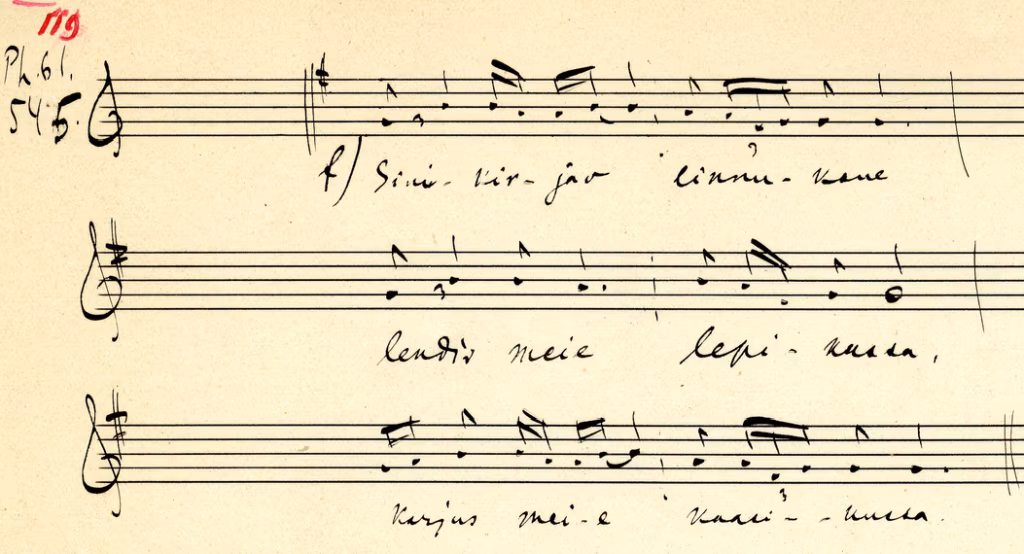 119
Ph. 61.
545.
f) Sini- kir- jäv linnu- kane
lendäs meie lepi- kussa,
karjus mei-e kaasi- - kussa.